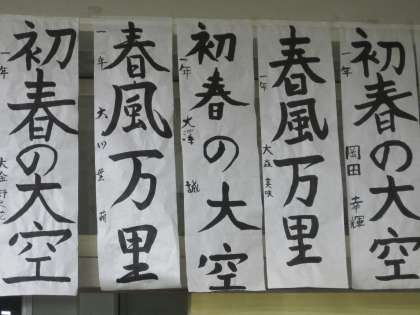 初春の大空
一年 岡田 幸輝
春風万里
一年 大森 美咲
初春の大空
一年 大澤
春風万里
一年 大川
初春の大空
一年